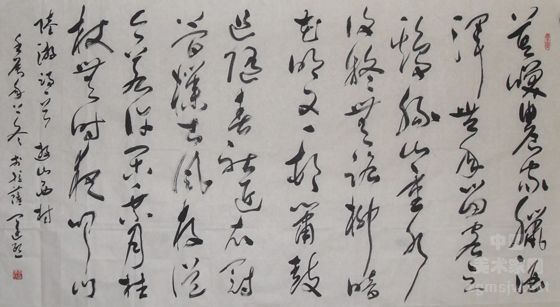 莫笑農家臘酒
渾豐年留客足
雞豚山重水
復疑無路柳暗
花明又一村簫鼓
追隨春社近衣冠
簡樸古風存從
今若許閑乘月拄
杖無時夜叩門
陸游詩一首 遊山西村
壬辰年 冬 書於
美术家网